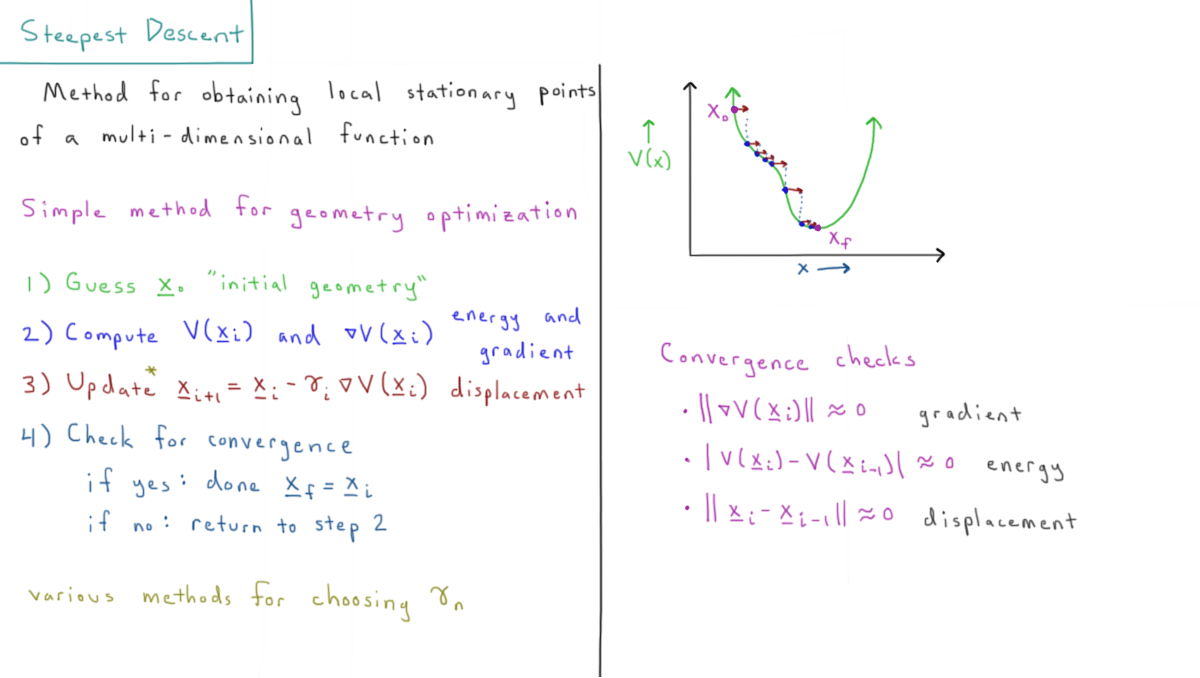 Steepest Descent
Method for obtaining local stationary points
of a multi-dimensional function
Simple method for geometry optimization
1) Guess x₀ "initial geometry"
2) Compute V(xᵢ) and ∇V(xᵢ) energy and gradient
3) Update* xᵢ₊₁ = xᵢ - γᵢ ∇V(xᵢ) displacement
4) Check for convergence
if yes: done x_f = xᵢ
if no: return to step 2
various methods for choosing γₙ
↑
V(x)
X₀
X_f
x →
Convergence checks
• ||∇V(xᵢ)|| ≈ 0 gradient
• |V(xᵢ) - V(xᵢ₋₁)| ≈ 0 energy
• ||xᵢ - xᵢ₋₁|| ≈ 0 displacement